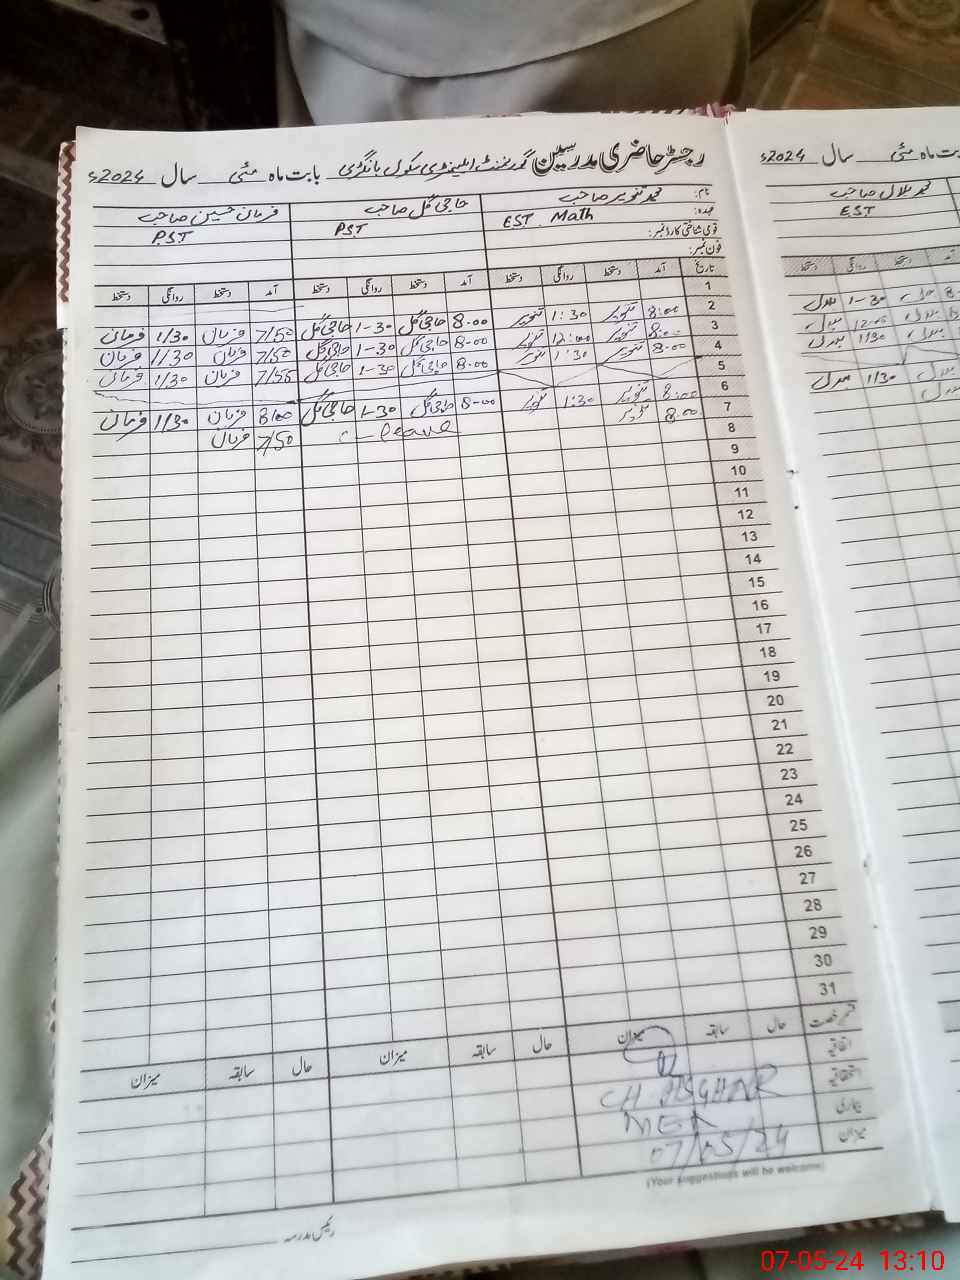 رجسٹر حاضری مدرسین گورنمنٹ ایلیمنٹری سکول بانگڑی بابت ماہ مئی سال 2024ء
نام: محمد تنویر صاحب حاجی گل صاحب فرمان حسین صاحب
عہدہ: EST. Math PST P.S.T
قومی شناختی کارڈ نمبر:
فون نمبر:
تاریخ آمد دستخط روانگی دستخط آمد دستخط روانگی دستخط آمد دستخط روانگی دستخط
1
2 8:00 تنویر 1:30 تنویر 8-00 حاجی گل 1-30 حاجی گل 7/50 فرمان 1/30 فرمان
3 8:00 تنویر 12:00 تنویر 8-00 حاجی گل 1-30 حاجی گل 7/50 فرمان 11/30 فرمان
4 8-00 تنویر 1:30 تنویر 8-00 حاجی گل 1-30 حاجی گل 7/55 فرمان 1/30 فرمان
5
6 8:00 تنویر 1:30 تنویر 8-00 حاجی گل 1-30 حاجی گل 8/00 فرمان 1/30 فرمان
7 8.00 تنویر c-leave 7/50 فرمان
8
9
10
11
12
13
14
15
16
17
18
19
20
21
22
23
24
25
26
27
28
29
30
31
قسم رخصت حال سابقہ میزان حال سابقہ میزان حال سابقہ میزان
اتفاقیہ
استحقاقیہ
بیماری
میزان
02
CH. ASGHAR
MEA
07/05/24
(Your suggestions will be welcome)
رئیس مدرسہ
بابت ماہ مئی سال 2024ء
محمد بلال صاحب
EST
آمد دستخط روانگی دستخط
بلال 1-30 بلال
بلال 12-05 بلال
بلال 11/30 بلال
بلال 1/30 بلال
بلال
07-05-24 13:10